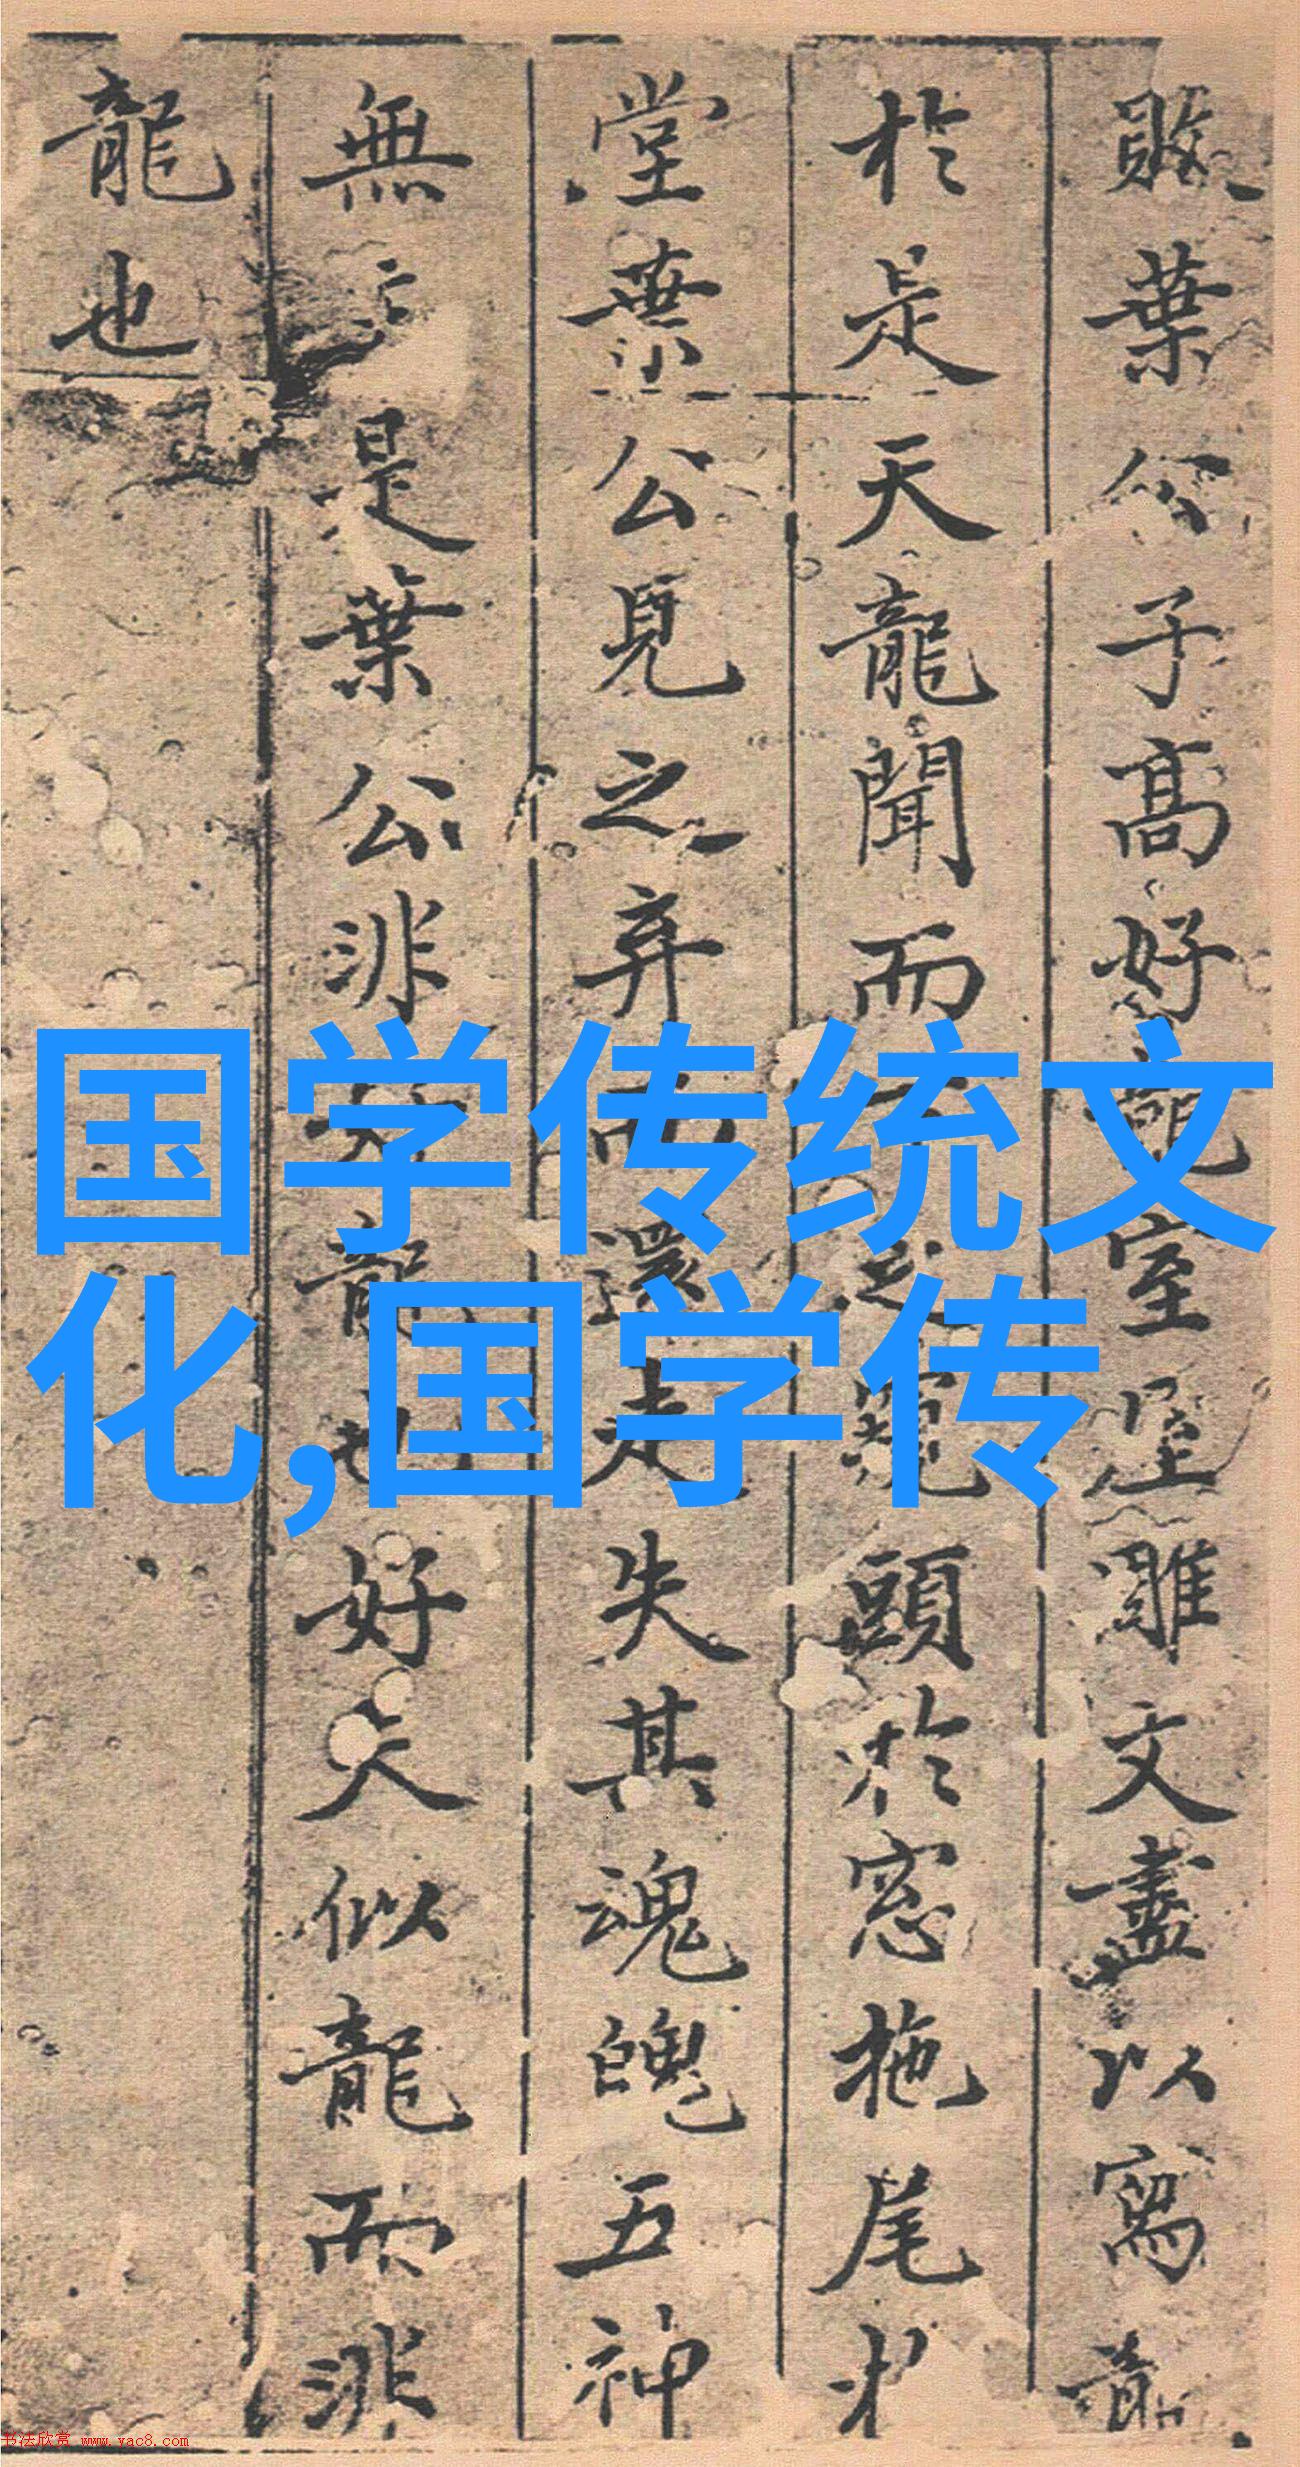 敗葉公子高好龍室屋雕文盡以寫龍
於是天龍聞而下之窺頭於窓拖尾於
堂葉公見之弃而還走失其魂魄五神
無主是葉公非好龍也好夫似龍而非
龍也
国学传统文
化,国学传
书法欣赏 www.yac8.com